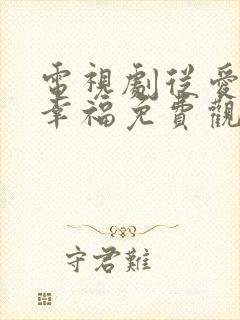 電視劇從愛
幸福免費觀
守君難